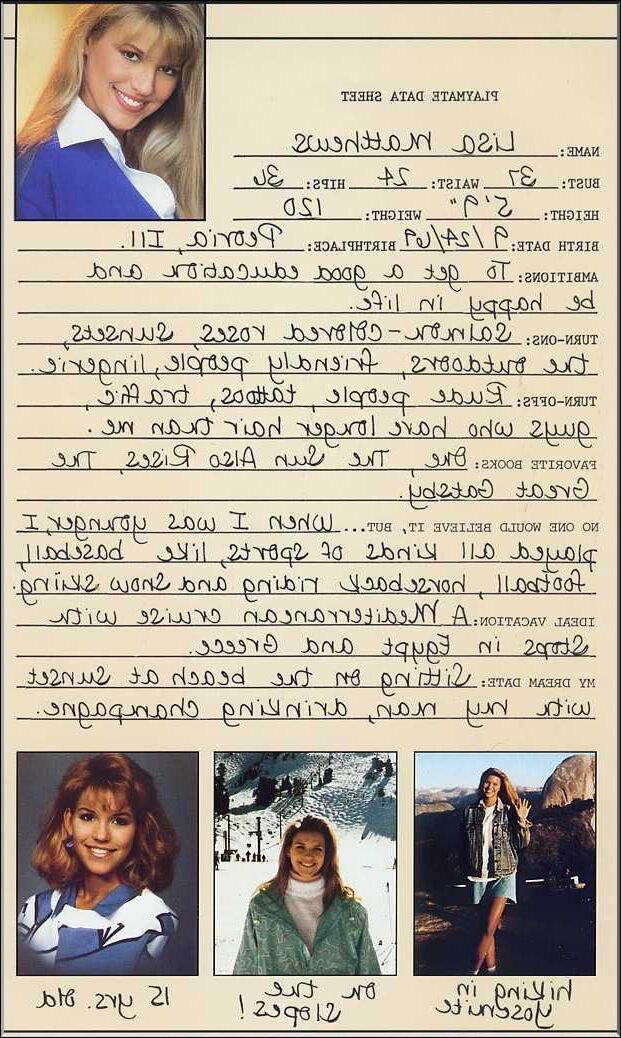 PLAYMATE DATA SHEET
NAME: Lisa Matthews
BUST: 37 WAIST: 24 HIPS: 36
HEIGHT: 5'9" WEIGHT: 120
BIRTH DATE: 9/24/69 BIRTHPLACE: Peoria, Ill.
AMBITIONS: To get a good education and
be happy in life.
TURN-ONS: Salmon-colored roses, sunsets,
the outdoors, friendly people, lingerie.
TURN-OFFS: Rude people, tattoos, traffic,
guys who have longer hair than me.
FAVORITE BOOKS: One, The Sun Also Rises, The
Great Gatsby.
NO ONE WOULD BELIEVE IT, BUT... When I was younger, I
played all kinds of sports, like baseball,
football, horseback riding and snow skiing.
IDEAL VACATION: A Mediterranean cruise with
stops in Egypt and Greece.
MY DREAM DATE: Sitting on the beach at sunset
with my man, drinking champagne.
hiking in
Yosemite
on the
slopes!
15 yrs. old